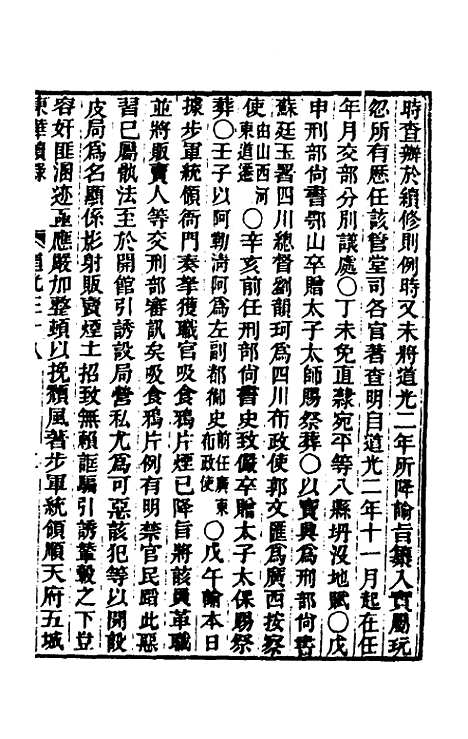 時查辦於續修則例時又未將道光二年所降諭旨纂入實屬玩
忽所有歷任該管堂司各官著查明自道光二年十一月起在任
年月交部分別議處〇丁未免直隸宛平等八縣坍沒地賦〇戊
申刑部尚書鄂山卒贈太子太師賜祭葬〇以寶興為刑部尚書
蘇廷玉署四川總督劉韻珂為四川布政使郭文匯為廣西按察
使由山西河東道遷〇辛亥前任刑部尚書史致儼卒贈太子太保賜祭
葬〇壬子以阿勒淸阿為左副都御史前任廣東布政使〇戊午諭本日
據步軍統領衙門奏拏獲職官吸食鴉片煙已降旨將該員革職
並將販賣人等交刑部審訊矣吸食鴉片例有明禁官民蹈此惡
習已屬骫法至於開館引誘設局營私尤為可惡該犯等以開設
皮局為名顯係影射販賣煙土招致無賴誆騙引誘輦轂之下豈
容奸匪溷迹亟應嚴加整頓以挽頹風著步軍統領順天府五城
東華續錄 道光三十八